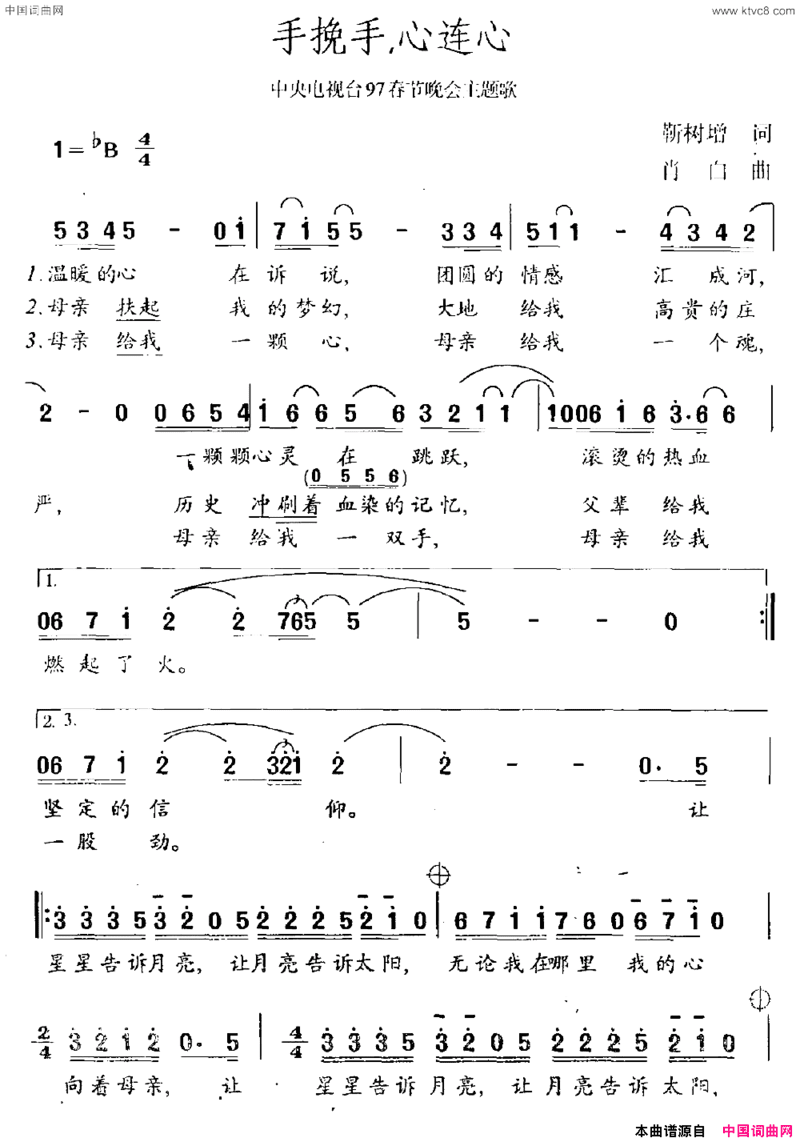 中国词曲网
www.ktvc8.com
手挽手,心连心
中央电视台97春节晚会主题歌
1=♭B 4/4
靳树增 词
肖 白 曲
5 3 4 5 - 0 1 | 7 1 5 5 - 3 3 4 | 5 1 1 - 4 3 4 2
1.温暖的心 在诉说, 团圆的情感 汇成河,
2.母亲扶起 我的梦幻, 大地给我 高贵的庄
3.母亲给我 一颗心, 母亲给我 一个魂,
2 - 0 0 6 5 4 | 1 6 6 5 6 3 2 1 1 | 1 0 0 6 1 6 3. 6 6
一颗颗心灵在跳跃, 滚烫的热血
(0 5 5 6)
严, 历史冲刷着血染的记忆, 父辈给我
母亲给我一双手, 母亲给我
1.
0 6 7 1 2 2 7 6 5 5 | 5 - - 0 :|
燃起了火。
2. 3.
0 6 7 1 2 2 3 2 1 2 | 2 - - 0. 5
坚定的信仰。 让
一股劲。
|: 3 3 3 5 3 2 0 5 2 2 2 5 2 1 0 | 6 7 1 1 1 7 6 0 6 7 1 0
星星告诉月亮, 让月亮告诉太阳, 无论我在哪里 我的心
2/4 3 2 1 2 0. 5 | 4/4 3 3 3 5 3 2 0 5 2 2 2 5 2 1 0
向着母亲, 让 星星告诉月亮, 让月亮告诉太阳,
本曲谱源自 中国词曲网